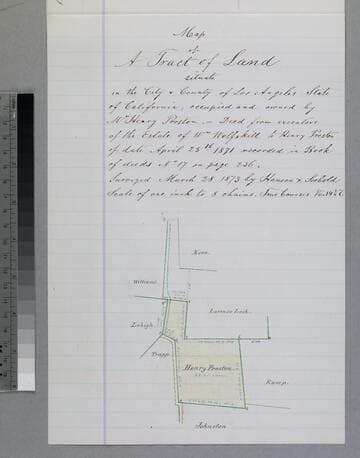 Map
of
A Tract of Land
situate
in the City & County of Los Angeles State
of California, occupied and owned by
Mr Henry Preston. — Deed from executors
of the Estate of Wm Wolfskill to Henry Preston
of date April 25th 1871 recorded in Book
of deeds No 17 on page 256.
Surveyed March 28 1873 by Hansen & Seebold
Scale of one inch to 8 chains. True Courses Va.
Kern.
Williams.
Lorenzo Leck.
Lehigh.
Trapp.
Henry Preston.
Knerp.
Johnston